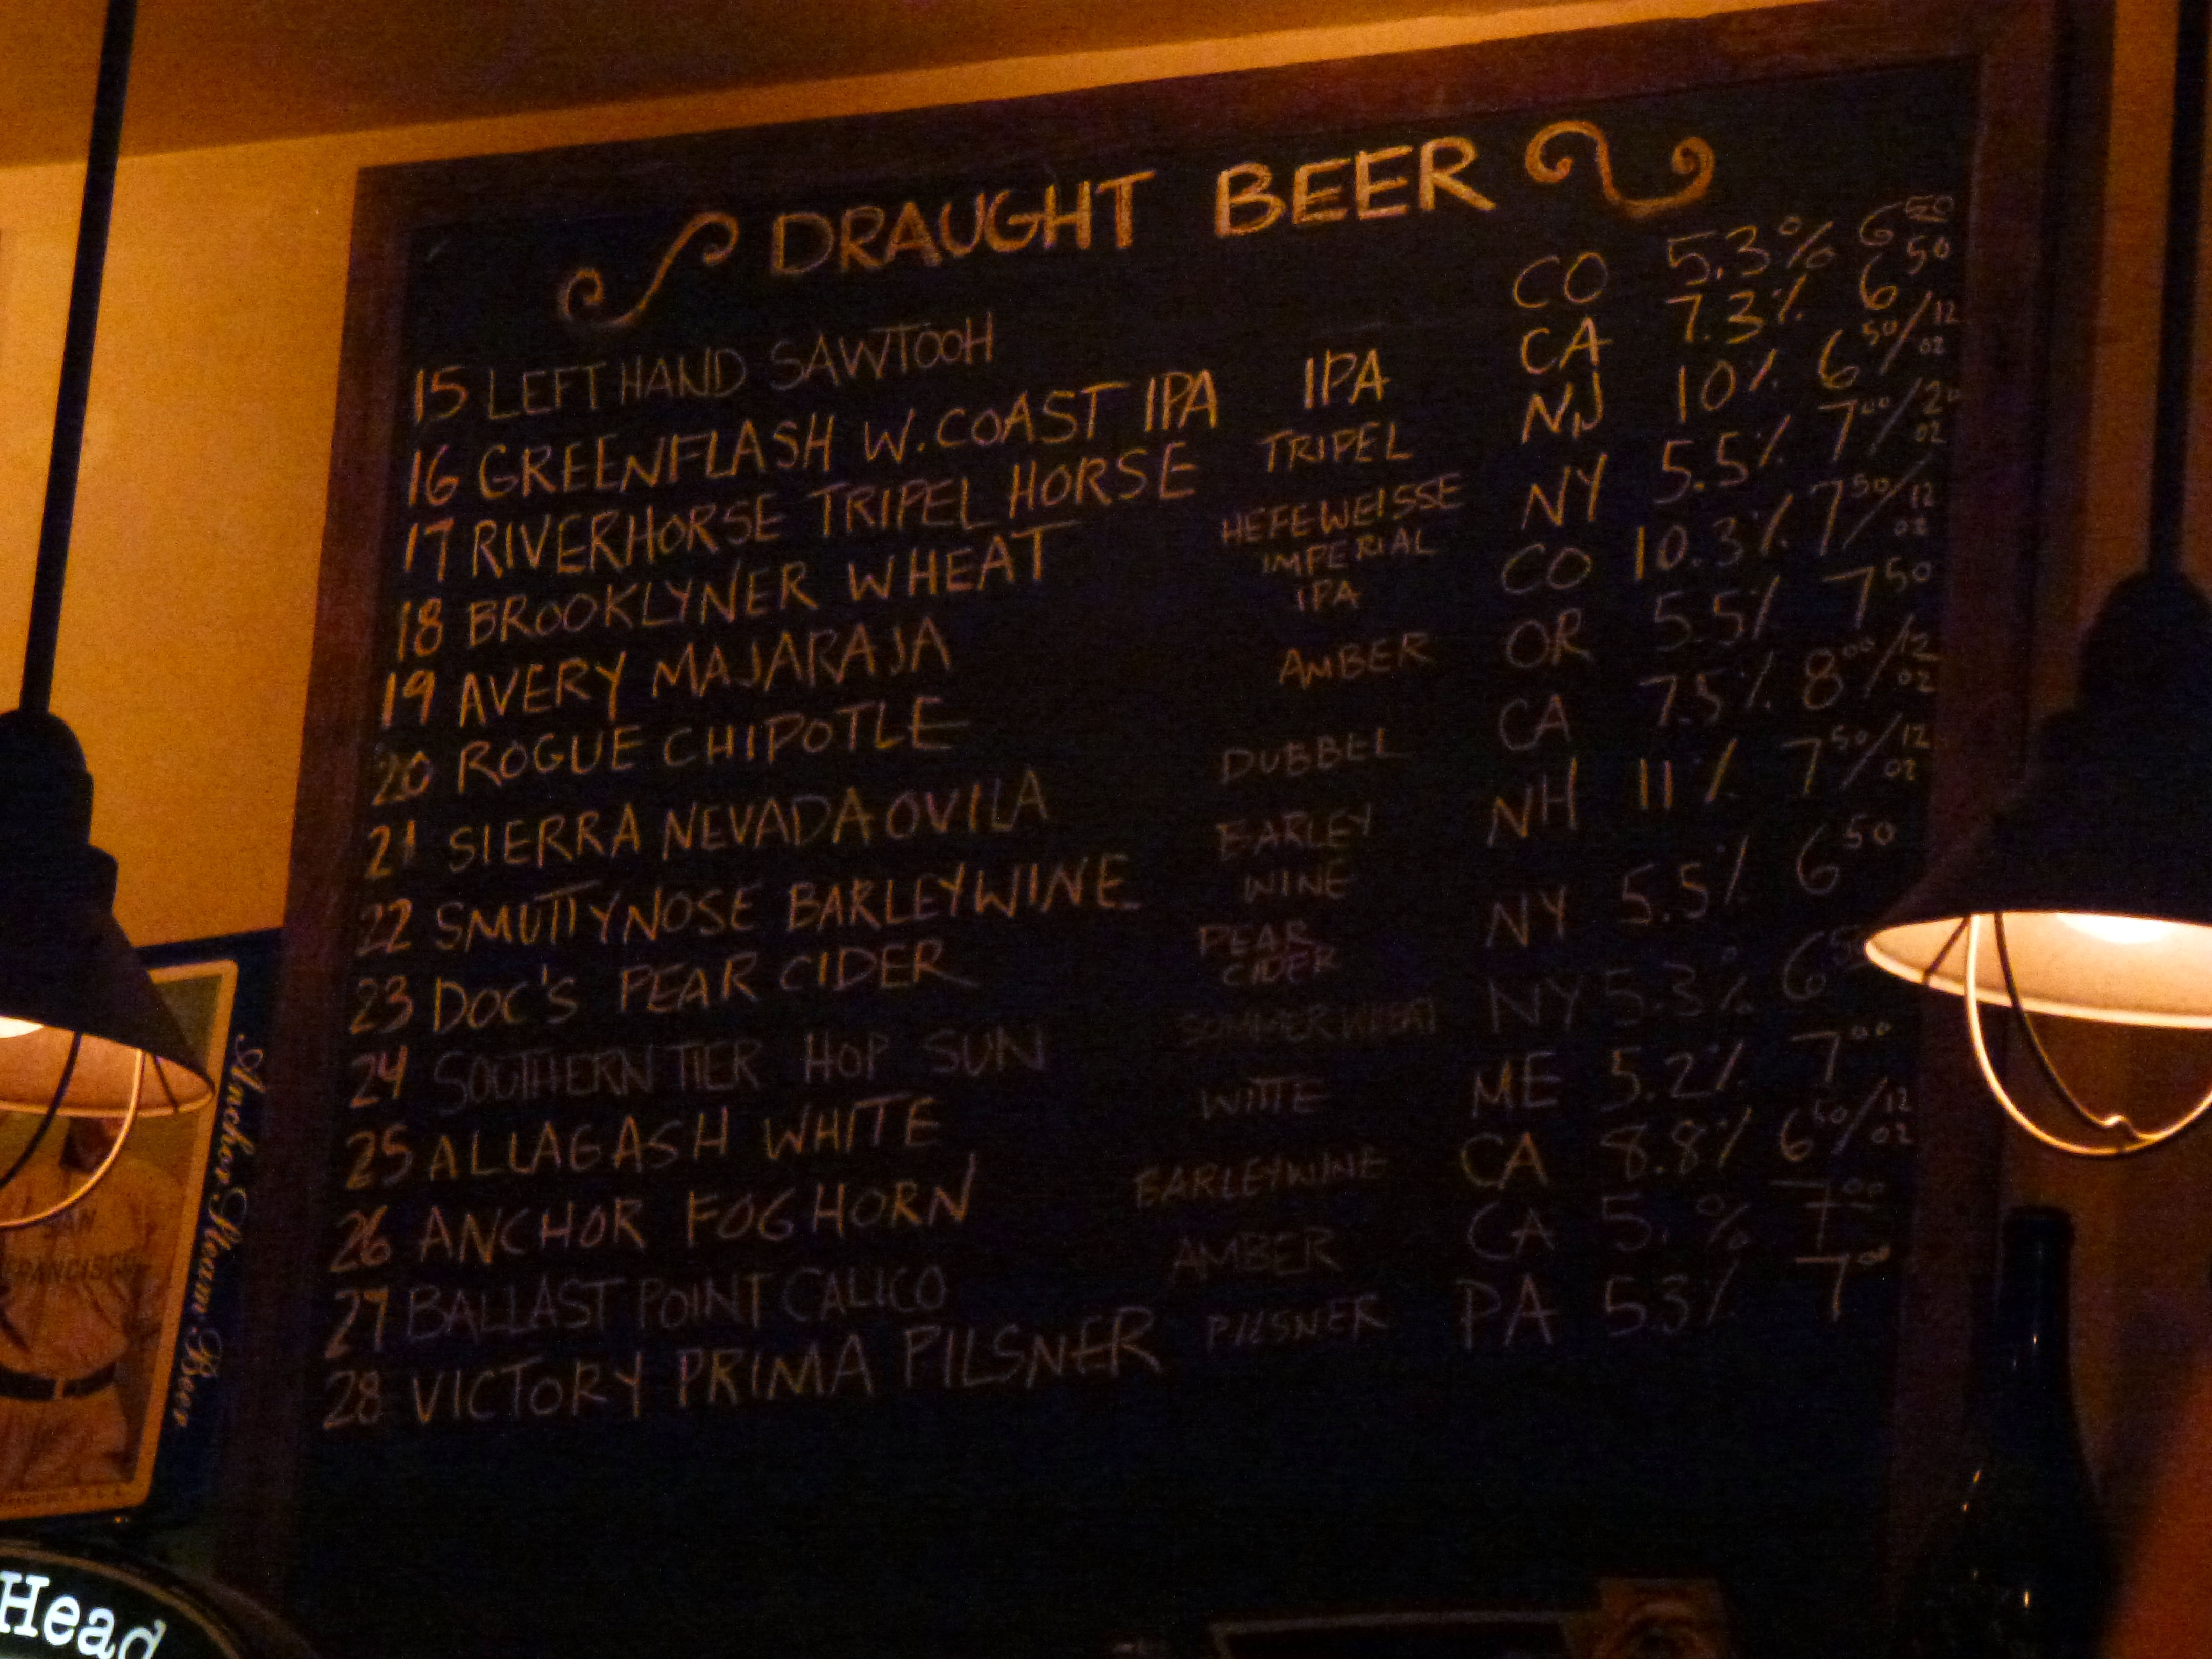 DRAUGHT BEER
15 LEFT HAND SAWTOOH CO 5.3% 6 50
16 GREENFLASH W. COAST IPA IPA CA 7.3% 6 50
17 RIVERHORSE TRIPEL HORSE TRIPEL NJ 10% 6 50/12 OZ
18 BROOKLYNER WHEAT HEFEWEISSE NY 5.5% 7 00/20 OZ
19 AVERY MAJARAJA IMPERIAL IPA CO 10.3% 7 50/12 OZ
20 ROGUE CHIPOTLE AMBER OR 5.5% 7 50
21 SIERRA NEVADA OVILA DUBBEL CA 7.5% 8 00/12 OZ
22 SMUTTYNOSE BARLEYWINE BARLEY WINE NH 11% 7 50/12 OZ
23 DOC'S PEAR CIDER PEAR CIDER NY 5.5% 6 50
24 SOUTHERN TIER HOP SUN SUMMER WHEAT NY 5.3% 6 50
25 ALLAGASH WHITE WITTE ME 5.2% 7 00
26 ANCHOR FOGHORN BARLEYWINE CA 8.8% 6 50/12 OZ
27 BALLAST POINT CALICO AMBER CA 5. % 7 00
28 VICTORY PRIMA PILSNER PILSNER PA 5.3% 7 00
Anchor Steam Beer
SAN
FRANCISCO
Head